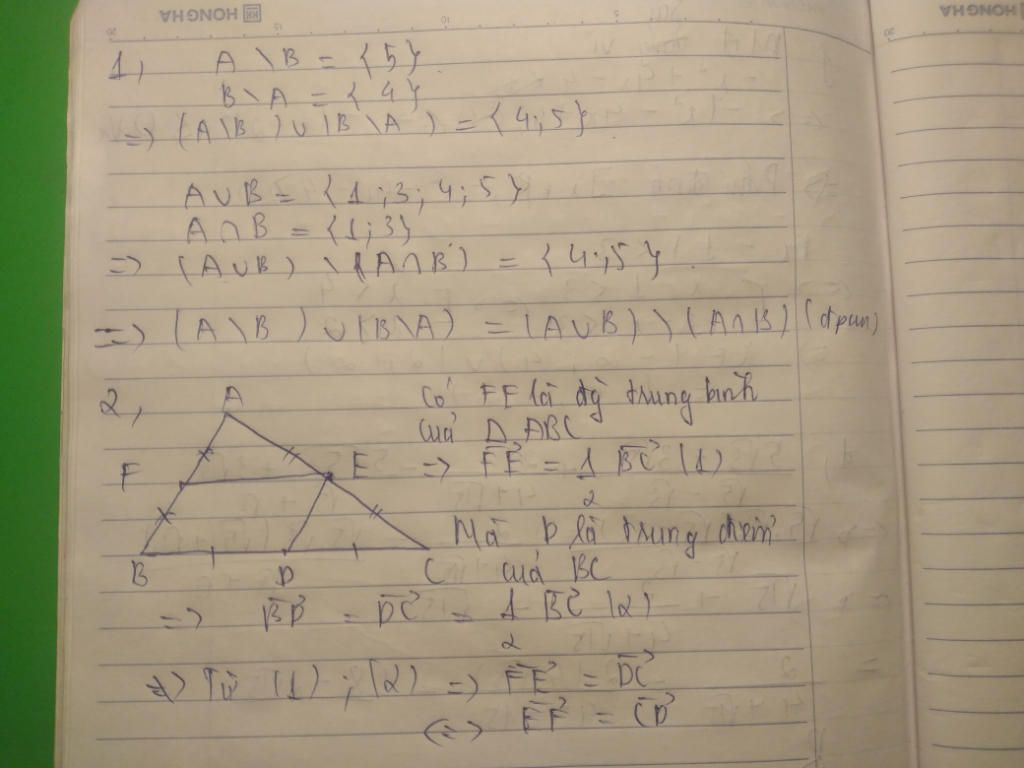 HONG HA
HONG HA
20 15 10 5 20
1, A \ B = {5}
B \ A = {4}
=> (A \ B) ∪ (B \ A) = {4;5}
A ∪ B = {1;3;4;5}
A ∩ B = {1;3}
=> (A ∪ B) \ (A ∩ B) = {4;5}
=> (A \ B) ∪ (B \ A) = (A ∪ B) \ (A ∩ B) (đpcm)
2, A
F E
B D C
Có FE là đg trung bình
của Δ ABC
=> \overrightarrow{FE} = \frac{1}{2} \overrightarrow{BC} (1)
Mà D là trung điểm
của BC
=> \overrightarrow{BD} = \overrightarrow{DC} = \frac{1}{2} \overrightarrow{BC} (2)
=> Từ (1) ; (2) => \overrightarrow{FE} = \overrightarrow{DC}
<=> \overrightarrow{EF} = \overrightarrow{CD}